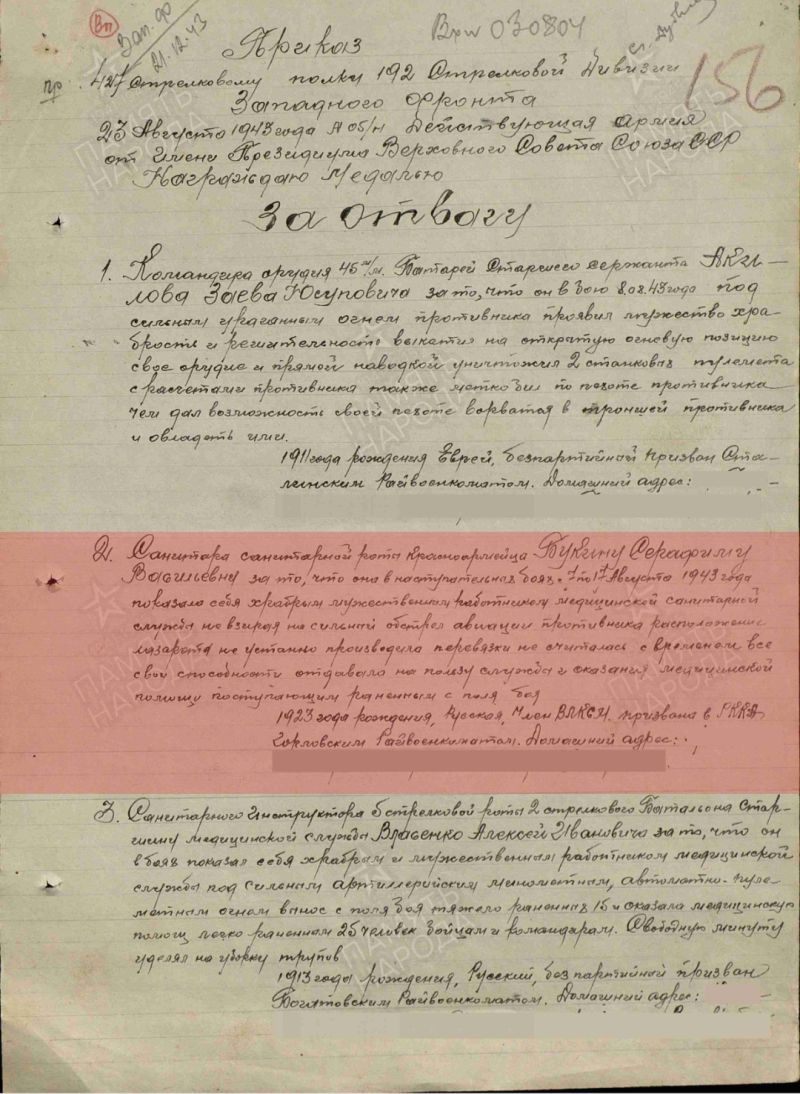 Вп
Зап. фр
21.12.43
Вхн 030804
156
пр
Приказ
427 Стрелковому полку 192 Стрелковой Дивизии
Западного Фронта
23 Августа 1943 года № 05/н Действующая армия
от Имени Президиума Верховного Совета Союза ССР
Награждаю Медалью
За отвагу
1. Командира орудия 45 м/м. Батареи Старшего сержанта
лова Заева Юсуповича за то, что он в бою 8.08.43 года под
сильным ураганным огнем противника проявил мужество хра-
брость и решительность выкатил на открытую огневую позицию
свое орудие и прямой наводкой уничтожил 2 станковых пулемета
с расчетами противника также метко бил по пехоте противника
чем дал возможность своей пехоте ворватся в траншеи противника
и овладеть ими.
1911 года рождения Еврей, безпартийный призван Ста-
линским Райвоенкоматом. Домашний адрес:
2. Санитара санитарной роты красноармейца Букину Серафиму
Васильевну за то, что она в наступательных боях с 7 по 17 Августа 1943 года
показала себя храбрым мужественным работником медицинской санитарной
службы не взирая на сильный обстрел авиации противника расположение
лазарета не устанно производила перевязки не считалась с временем все
свои способности отдавала на пользу службы и оказания медицинской
помощи поступающим раненным с поля боя
1923 года рождения, Русская, Член ВЛКСМ. призвана в РККА
Горловским Райвоенкоматом. Домашний адрес:
3. Санитарного Инструктора 6 стрелковой роты 2 стрелкового Батальона Стар-
шину медицинской службы Власенко Алексей Ивановича за то, что он
в боях показал себя храбрым и мужественным работником медицинской
службы под сильным артиллерийским минометным, автоматно-пуле-
метным огном вынос с поля боя тяжело раненных 15 и оказала медицинскую
помощ легко раненным 25 человек бойцам и командирам. Свободную минуту
уделял на уборку трупов
1913 года рождения, Русский, без партийной призван
Богатовским Райвоенкоматом. Домашний адрес: